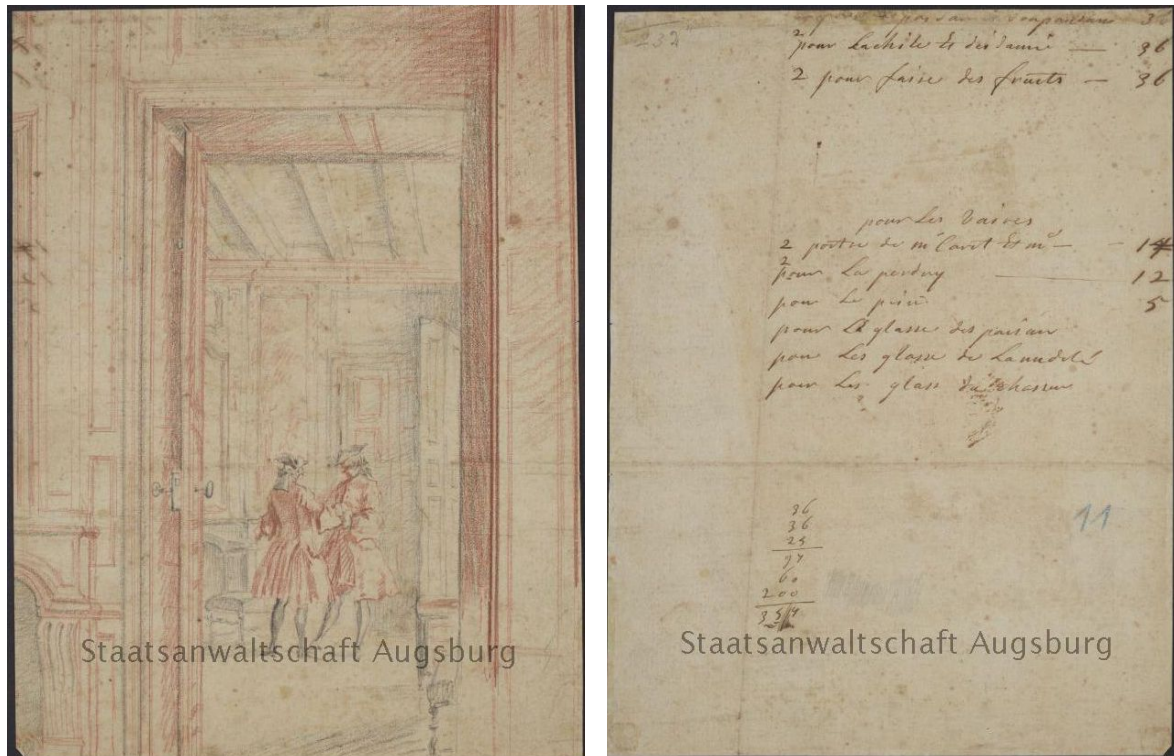 Staatsanwaltschaft Augsburg
232
36
2 pour Lachile Et des dame — 36
2 pour faire des fruits — 36
pour Les Vaises
2 portre de mr Carit Et me — 14
2 pour La perdry — 12
pour Le 5
pour La glasse des paisan
pour Les glasse de
pour Les glass du chasseur
36
36
25
97
60
200
357
11
Staatsanwaltschaft Augsburg